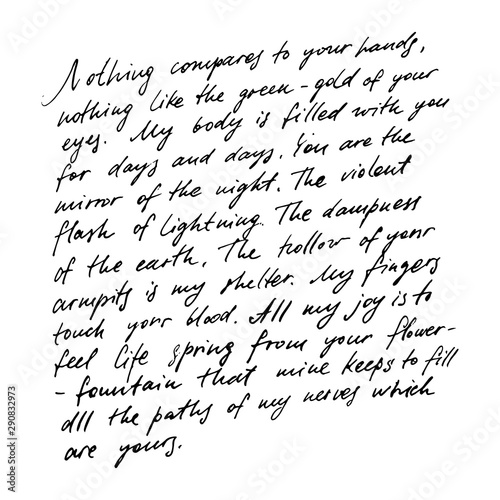 Nothing compares to your hands,
nothing like the green-gold of your
eyes. My body is filled with you
for days and days. You are the
mirror of the night. The violent
flash of lightning. The dampness
of the earth. The hollow of your
armpits is my shelter. My fingers
touch your blood. All my joy is to
feel life spring from your flower-
-fountain that mine keeps to fill
all the paths of my nerves which
are yours.
Adobe Stock | #290832973